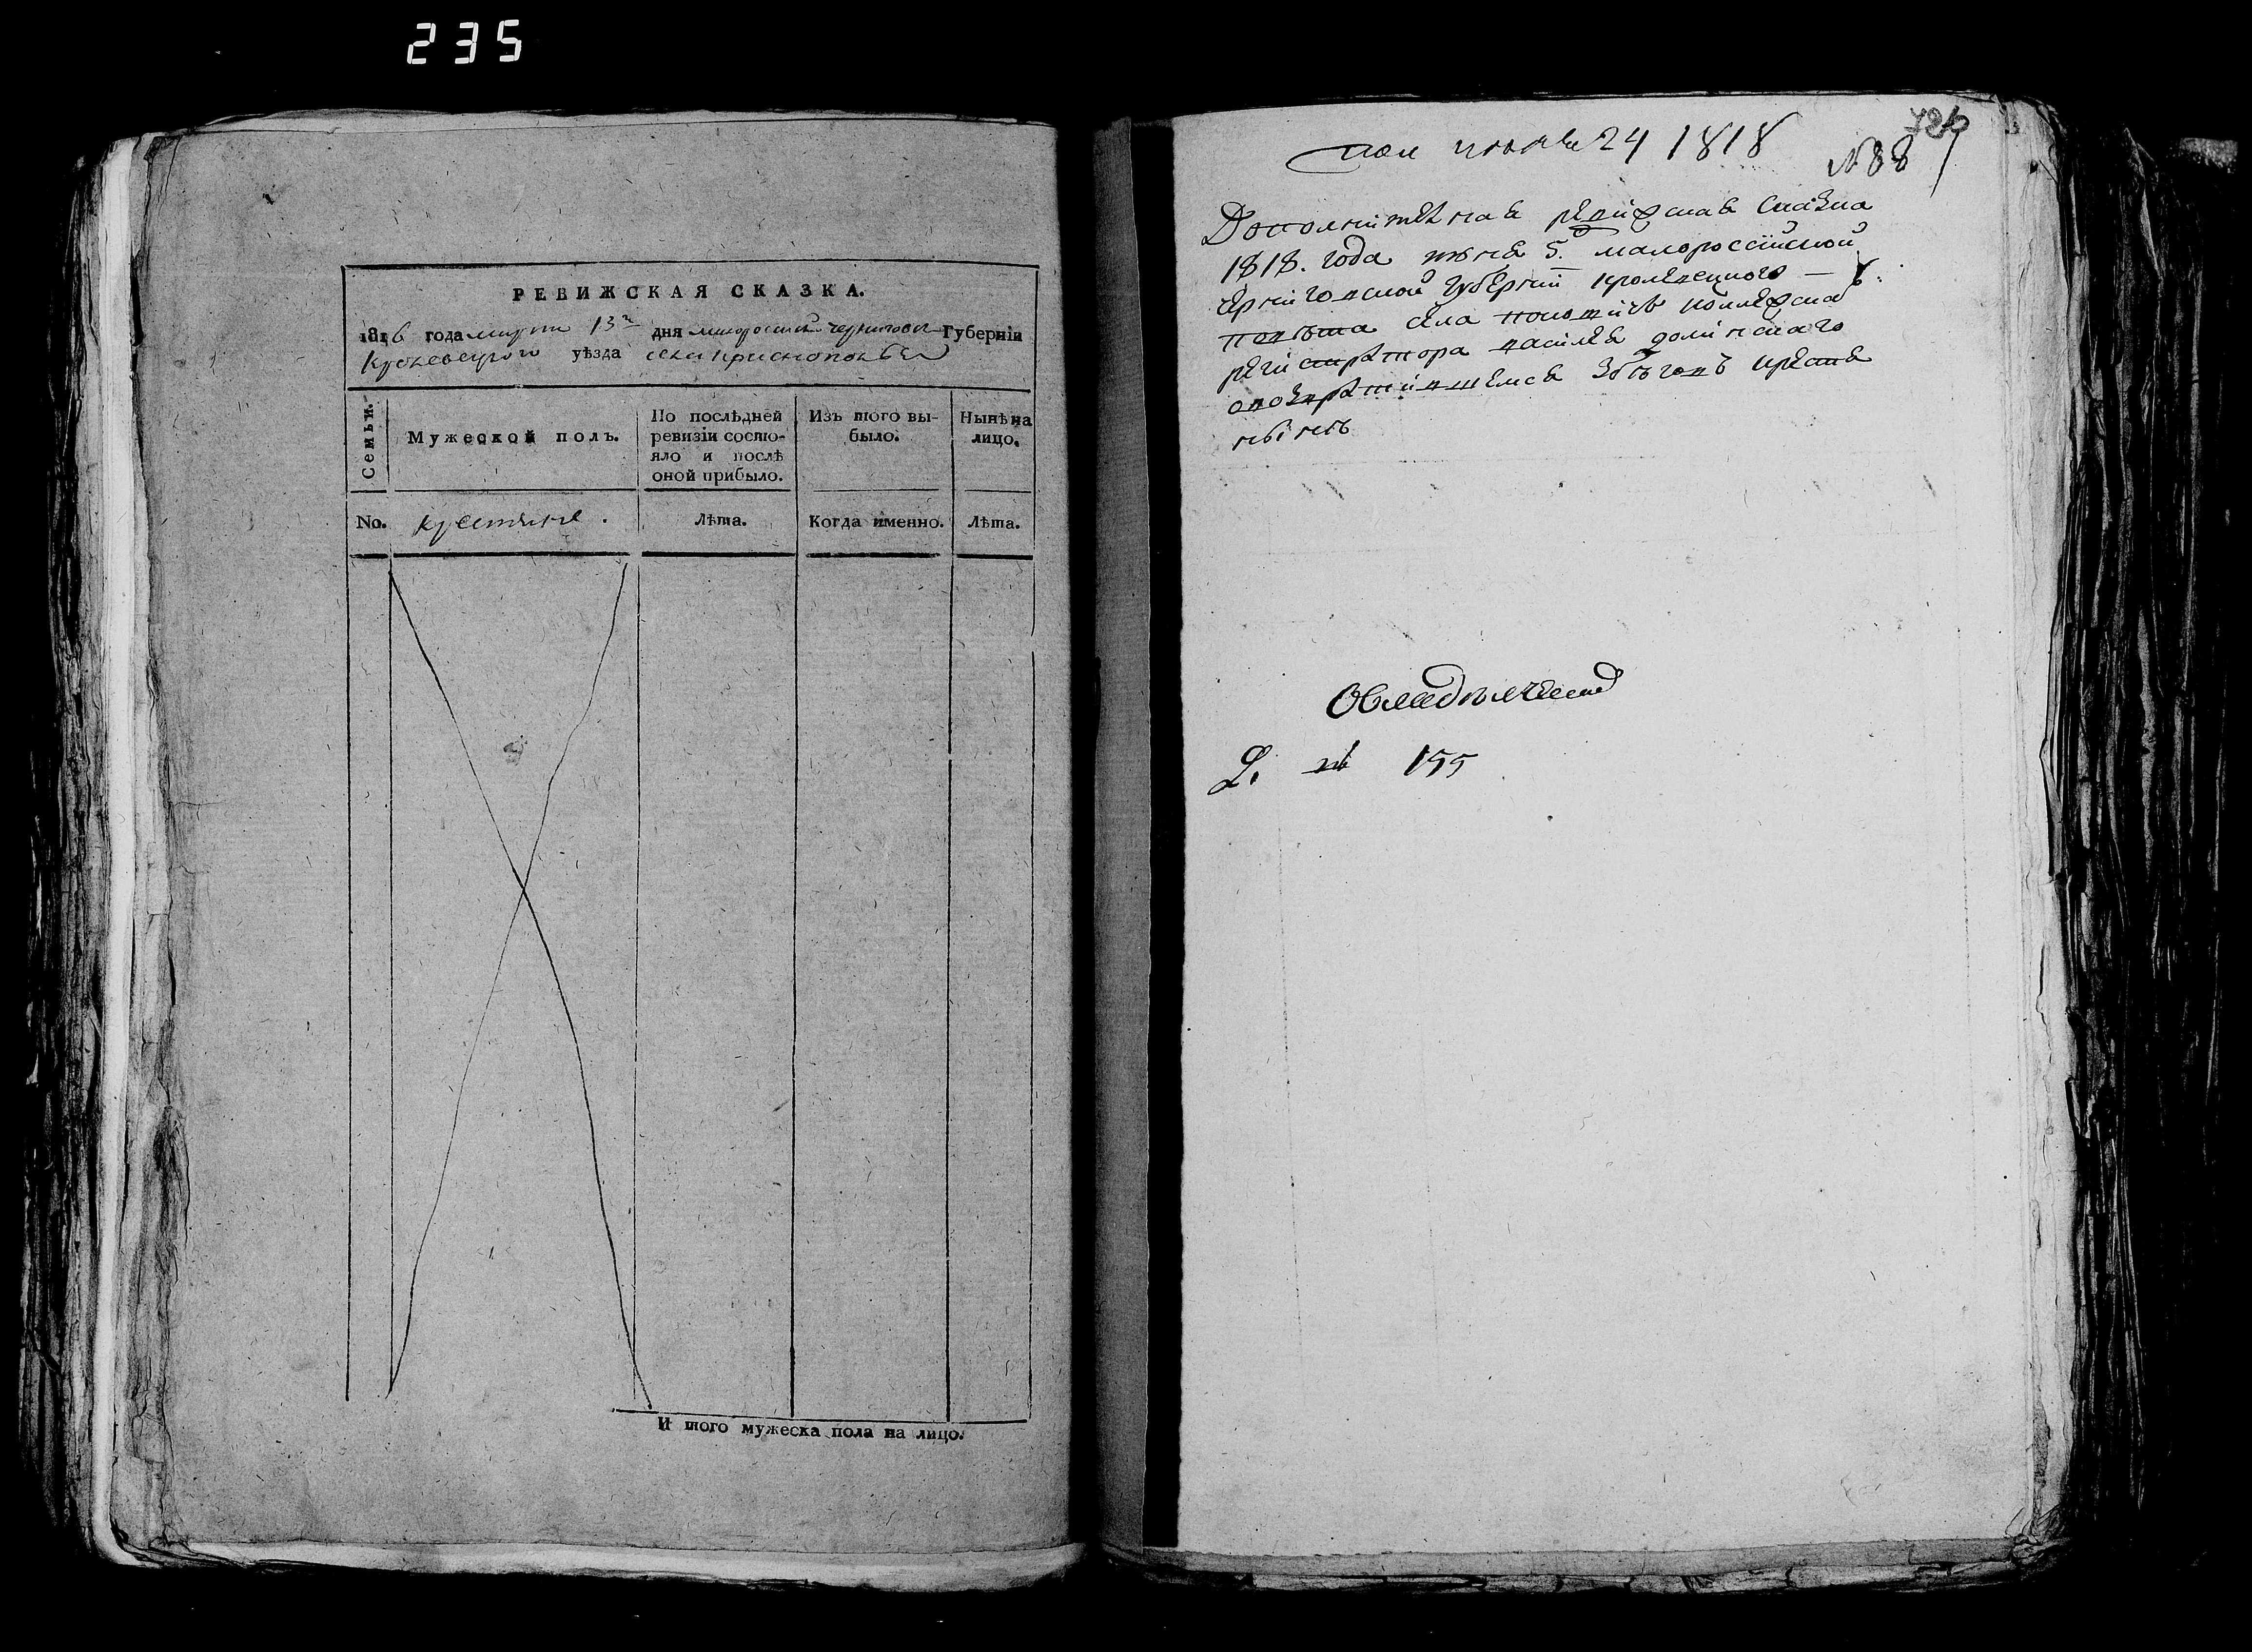 235
РЕВИЖСКАЯ СКАЗКА.
1816 года марта 13 дня малоросійской черниговской Губерніи
Кролевецкого уѣзда села Краснополья
Семьи.
Мужеской полъ.
По послѣдней
ревизіи состо-
яло и послѣ
оной прибыло.
Изъ того вы-
было.
Нынѣ на
лицо.
No.
крестьяне.
Лѣта.
Когда именно.
Лѣта.
И того мужеска пола на лицо.
пол июня 24 1818
№ 88
Дополнителная ревижская сказка
1818. года июня 5. малороссійской
черниговской губерніи кролевецкого
повѣта села колежска
регистратора василя долинскаго
овозвратившемся зъбѣговъ крестя
нинѣ
О владѣлческой
2. 155